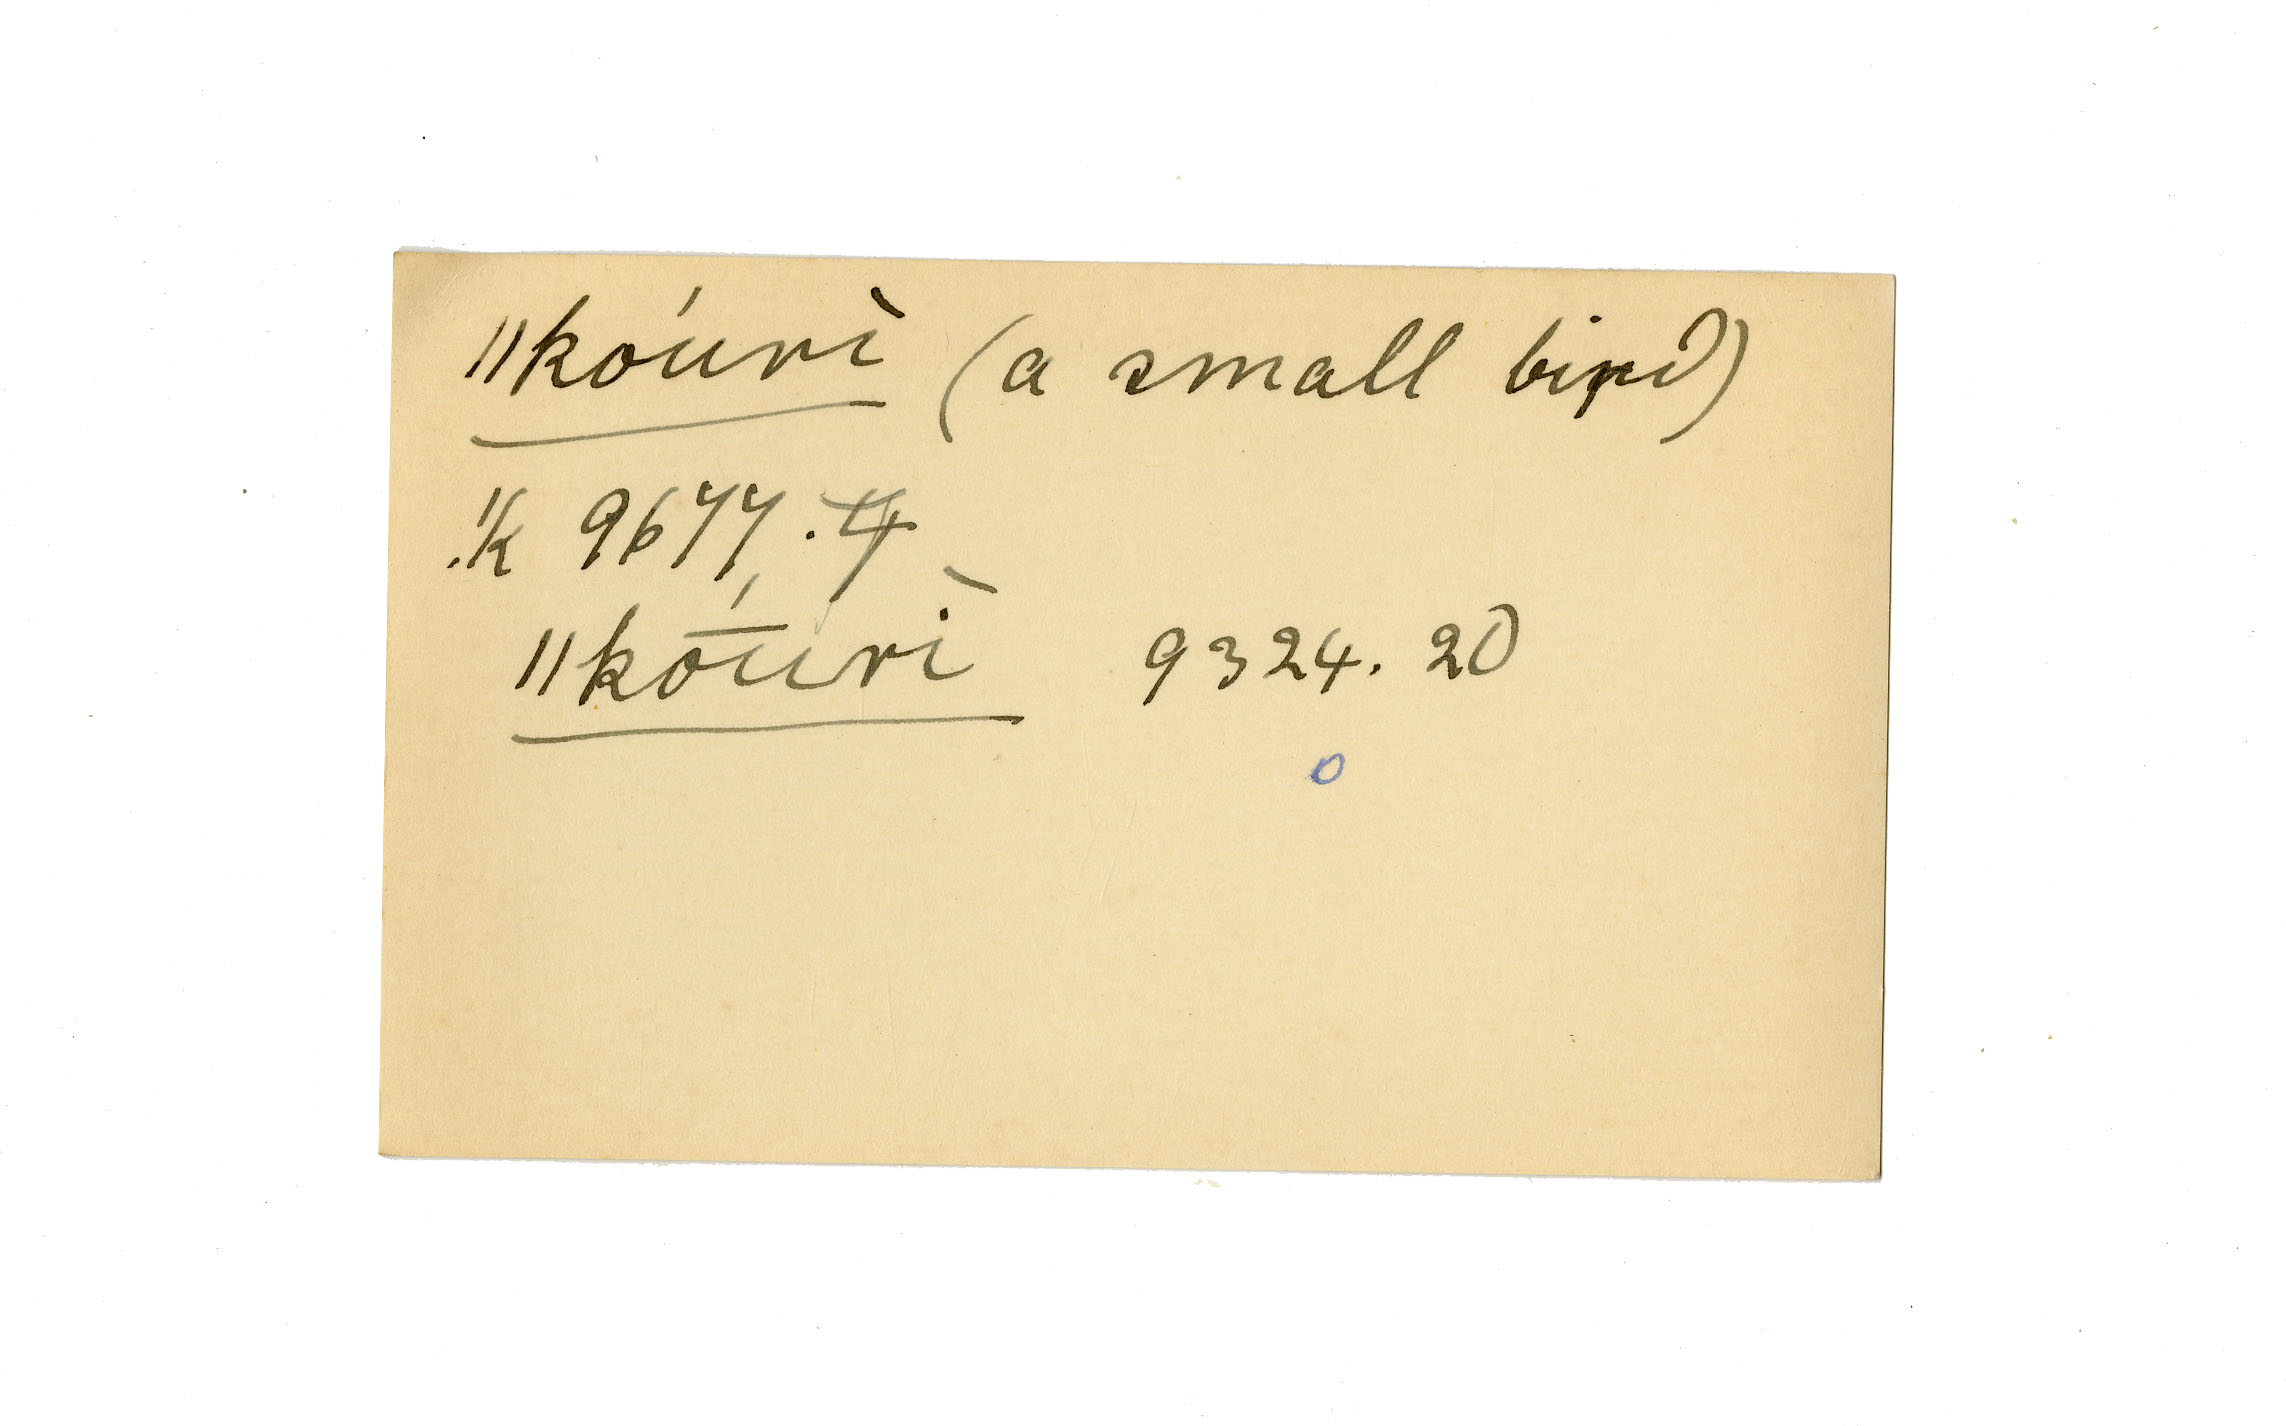 ǁkóurì̖ (a small bird)
ǁk 9677.4
ǁkṓurì 9324.20
o